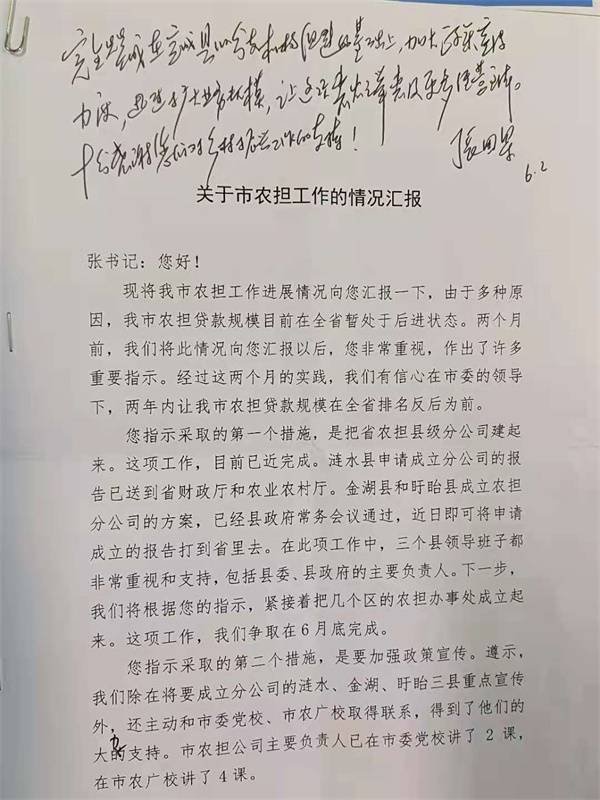 十分感谢你们对乡村振兴工作的支持！
6.2
关于市农担工作的情况汇报
张书记：您好！
现将我市农担工作进展情况向您汇报一下，由于多种原
因，我市农担贷款规模目前在全省暂处于后进状态。两个月
前，我们将此情况向您汇报以后，您非常重视，作出了许多
重要指示。经过这两个月的实践，我们有信心在市委的领导
下，两年内让我市农担贷款规模在全省排名反后为前。
您指示采取的第一个措施，是把省农担县级分公司建起
来。这项工作，目前已近完成。涟水县申请成立分公司的报
告已送到省财政厅和农业农村厅。金湖县和盱眙县成立农担
分公司的方案，已经县政府常务会议通过，近日即可将申请
成立的报告打到省里去。在此项工作中，三个县领导班子都
非常重视和支持，包括县委、县政府的主要负责人。下一步，
我们将根据您的指示，紧接着把几个区的农担办事处成立起
来。这项工作，我们争取在6月底完成。
您指示采取的第二个措施，是要加强政策宣传。遵示，
我们除在将要成立分公司的涟水、金湖、盱眙三县重点宣传
外，还主动和市委党校、市农广校取得联系，得到了他们的
大力的支持。市农担公司主要负责人已在市委党校讲了 2 课，
在市农广校讲了 4 课。